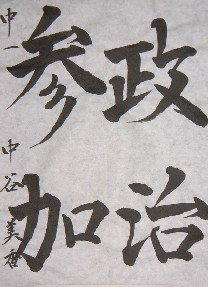 政治
参加
中一 中谷美香